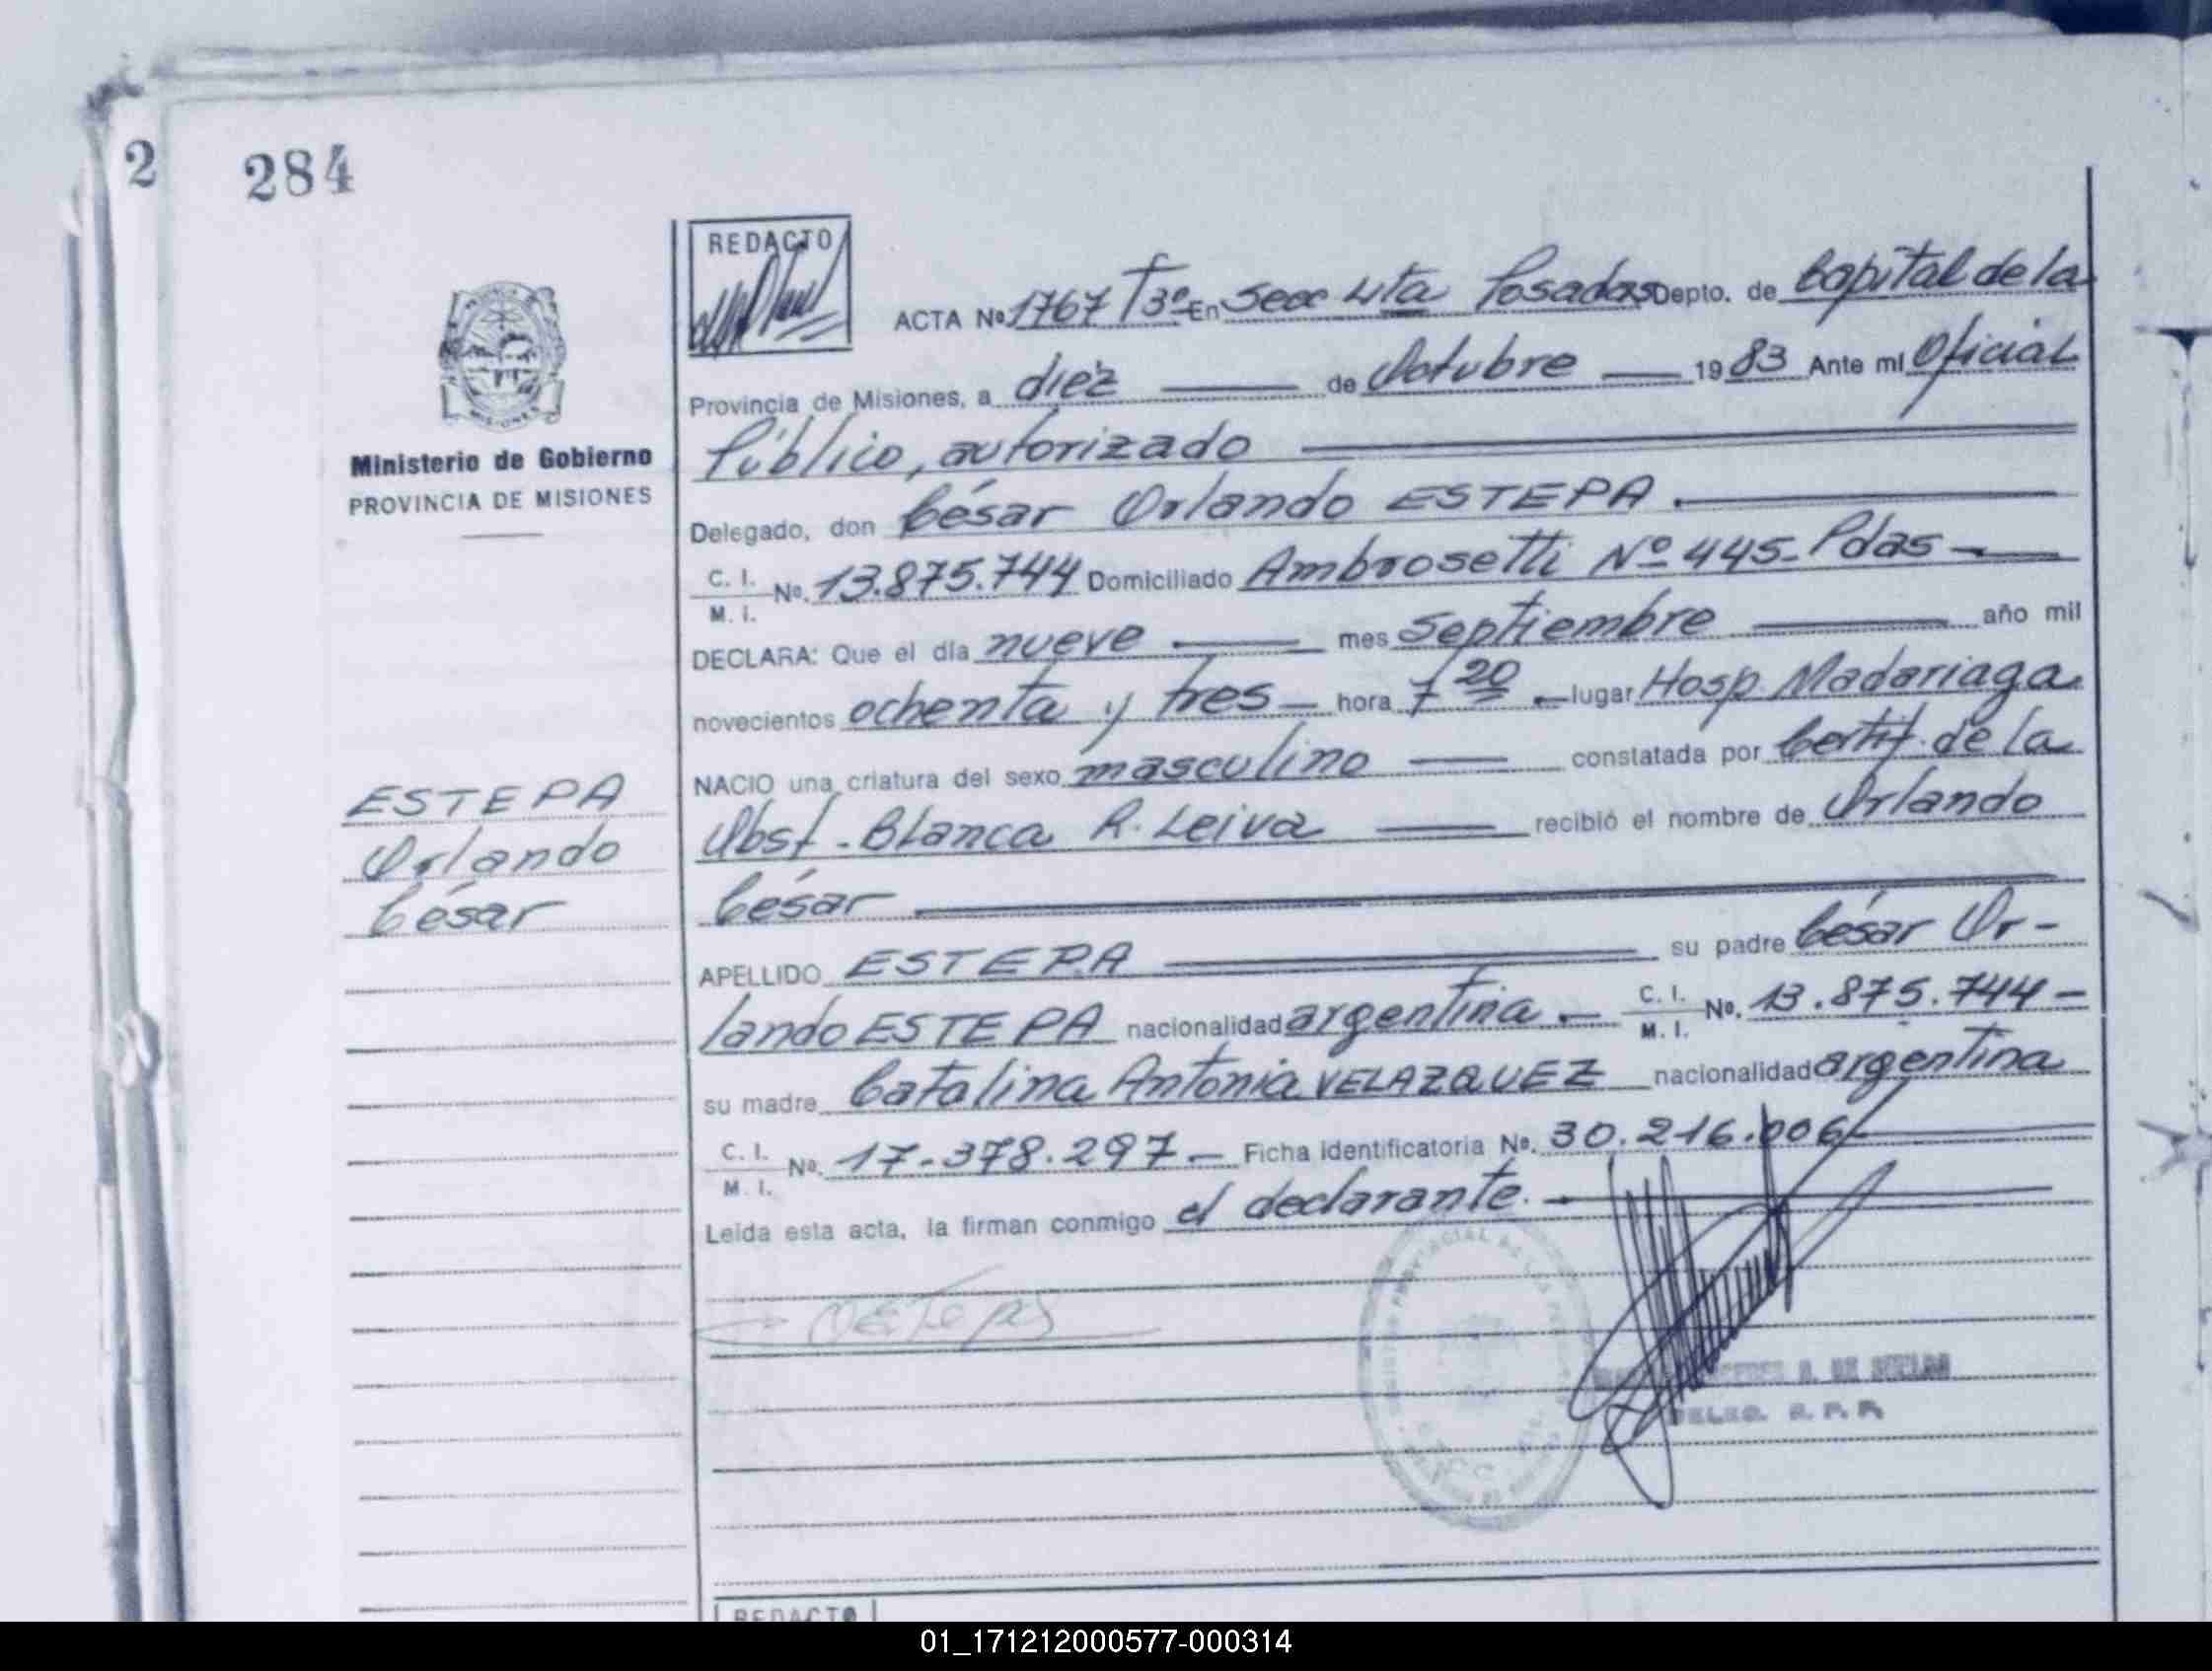 2 284
REDACTO
ACTA Nº 1767 Tº 3º En Secc 4ta Posadas Depto. de Capital de la
Provincia de Misiones, a diez de Octubre 1983 Ante mí Oficial
Ministerio de Gobierno
PROVINCIA DE MISIONES
Público, autorizado
Delegado, don César Orlando ESTEPA.
C. I. M. I. No. 13.875.744 Domiciliado Ambrosetti Nº 445- Pdas-
DECLARA: Que el día nueve mes Septiembre año mil
novecientos ochenta y tres - hora 7 20 - lugar Hosp Madariaga
NACIO una criatura del sexo masculino constatada por Certif. de la
ESTEPA
Orlando
César
Obst. Blanca R. Leiva recibió el nombre de Orlando
César
APELLIDO ESTEPA su padre César Or-
lando ESTEPA nacionalidad argentina.- C. I. M. I. No. 13.875.744-
su madre Catalina Antonia VELAZQUEZ nacionalidad argentina
C. I. M. I. No. 17.378.297.- Ficha identificatoria No. 30.216.006-
Leída esta acta, la firman conmigo el declarante.-
DELEG. R. P. P.
REDACTO
01_171212000577-000314